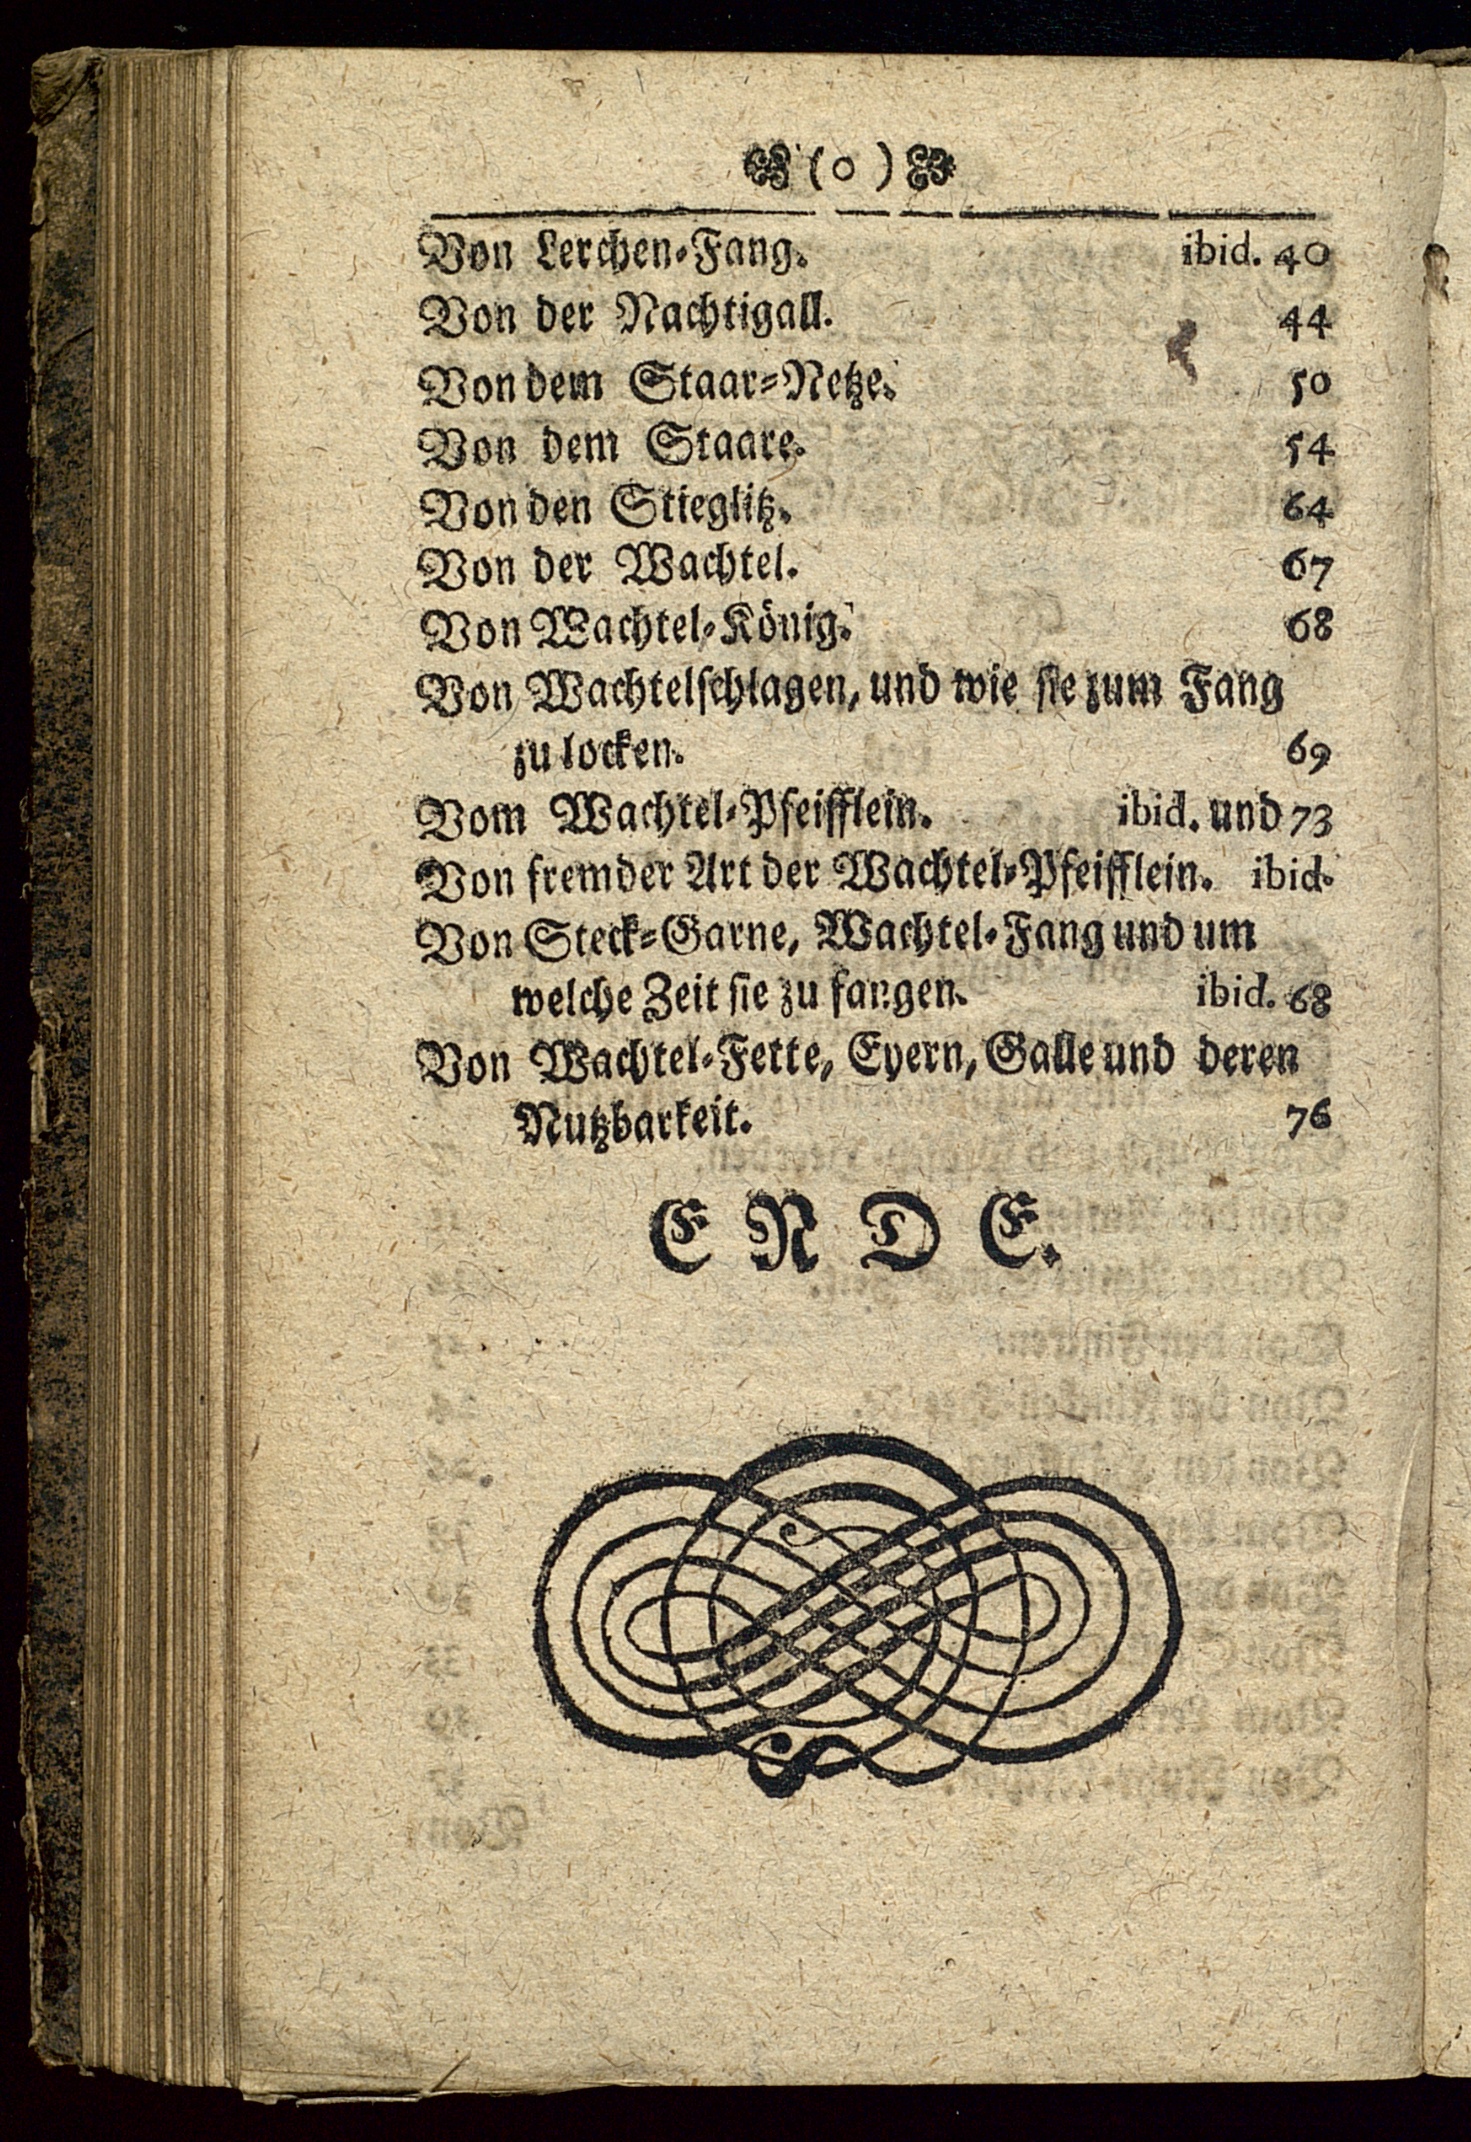 (o)
Von Lerchen-Fang. ibid. 40
Von der Nachtigall. 44
Von dem Staar-Netze. 50
Von dem Staare. 54
Von den Stieglitz. 64
Von der Wachtel. 67
Von Wachtel-König. 68
Von Wachtelschlagen, und wie sie zum Fang
zu locken. 69
Vom Wachtel-Pfeifflein. ibid. und 73
Von fremder Art der Wachtel-Pfeifflein. ibid.
Von Steck-Garne, Wachtel-Fang und um
welche Zeit sie zu fangen. ibid. 68
Von Wachtel-Fette, Eyern, Galle und deren
Nutzbarkeit. 76
ENDE.